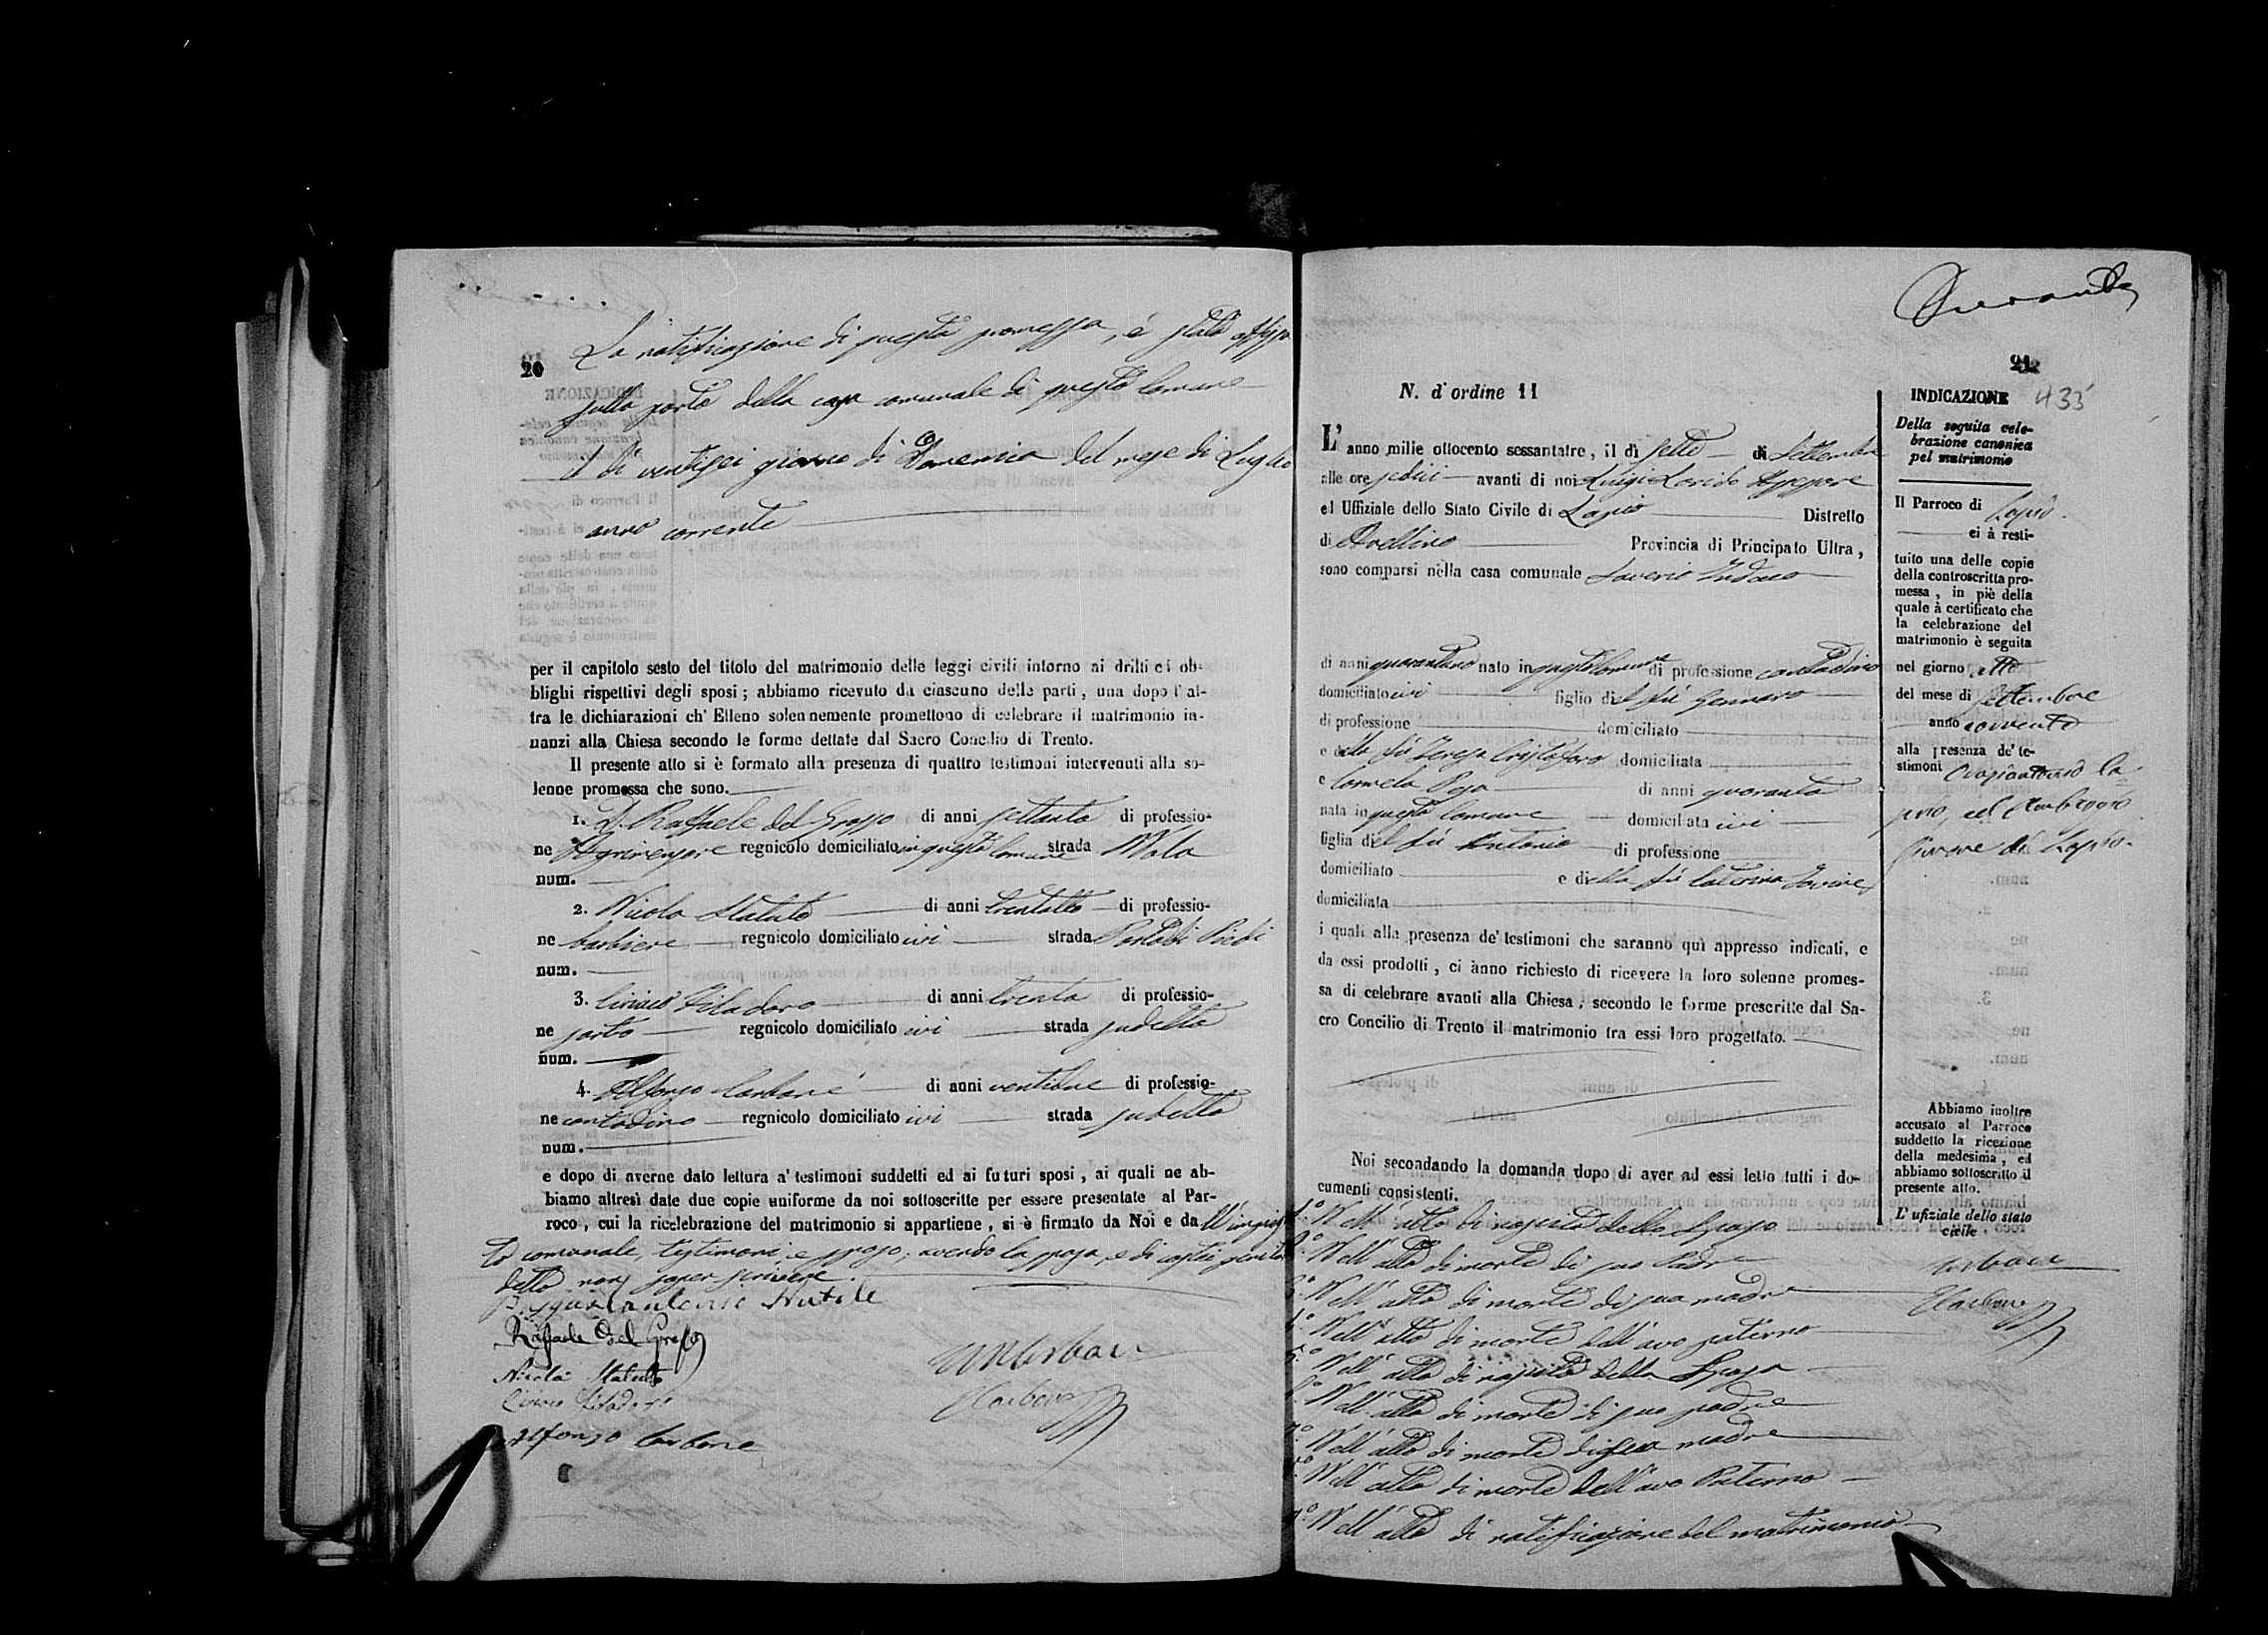 20
La notificazione di questa promessa, è stata affissa
sulla porta della casa comunale di questo Comune
il dì ventisei giorno di Domenica del mese di Luglio
anno corrente
per il capitolo sesto del titolo del matrimonio delle leggi civili intorno ai dritti ed ob-
blighi rispettivi degli sposi ; abbiamo ricevuto da ciascuno delle parti , una dopo l' al-
tra le dichiarazioni ch' Elleno solennemente promettono di celebrare il matrimonio in-
nanzi alla Chiesa secondo le forme dettate dal Sacro Concilio di Trento.
Il presente atto si è formato alla presenza di quattro testimoni intervenuti alla so-
lenne promessa che sono.
1. D. Raffaele del Grosso di anni settanta di professio-
ne regnicolo domiciliato in questo Comune strada
num.
2. Nicola Statuto di anni trentotto di professio-
ne barbiere regnicolo domiciliato ivi strada
num.
3. Ciriaco Filadoro di anni trenta di professio-
ne sarto regnicolo domiciliato ivi strada
num.
4. Alfonso Carbone di anni di professio-
ne contadino regnicolo domiciliato ivi strada
num.
e dopo di averne dato lettura a' testimoni suddetti ed ai futuri sposi , ai quali ne ab-
biamo altresì date due copie uniforme da noi sottoscritte per essere presentate al Par-
roco , cui la ricelebrazione del matrimonio si appartiene , si è firmato da Noi e dall'impiega
to comunale, testimoni e sposo, avendo la sposa, e di costei genitori
detto non saper scrivere.
Raffaele Del Grosso
Nicola Statuto
Ciriaco Filadoro
Alfonso Carbone
Carbone
21
433
N. d'ordine 11
L' anno mille ottocento sessantatre , il dì sette di Settembre
alle ore sedici avanti di noi Luigi Assessore
ed Uffiziale dello Stato Civile di Lapio Distretto
di Avellino Provincia di Principato Ultra ,
sono comparsi nella casa comunale Saverio
di anni quarantuno nato in questo Comune di professione contadino
domiciliato ivi figlio del fu Gennaro
di professione domiciliato
e della fu Teresa Cristofaro domiciliata
e Carmela di anni quaranta
nata in questo Comune domiciliata ivi
figlia del fu Antonio di professione
domiciliato e della fu Caterina
domiciliata
i quali alla presenza de' testimoni che saranno qui appresso indicati, e
da essi prodotti , ci ànno richiesto di ricevere la loro solenne promes-
sa di celebrare avanti alla Chiesa , secondo le forme prescritte dal Sa-
cro Concilio di Trento il matrimonio tra essi loro progettato.
Noi secondando la domanda dopo di aver ad essi letto tutti i do-
cumenti consistenti.
1.º Nell'atto di nascita dello Sposo
2.º Nell'atto di morte di suo Padre
3.º Nell'atto di morte di sua madre
4.º Nell'atto di morte dell'avo paterno
5.º Nell'atto di nascita della Sposa
6.º Nell'atto di morte di suo padre
7.º Nell'atto di morte di sua madre
8.º Nell'atto di morte dell'avo Paterno
9.º Nell'atto di notificazione del matrimonio
INDICAZIONE
Della seguita cele-
brazione canonica
pel matrimonio
Il Parroco di Lapio
ci à resti-
tuito una delle copie
della controscritta pro-
messa , in piè della
quale à certificato che
la celebrazione del
matrimonio è seguita
nel giorno otto
del mese di Settembre
anno corrente
alla presenza de' te-
stimoni
di Lapio.
Abbiamo inoltre
accusato al Parroco
suddetto la ricezione
della medesima , ed
abbiamo sottoscritto il
presente atto.
L' ufiziale dello stato
civile .
Carbone